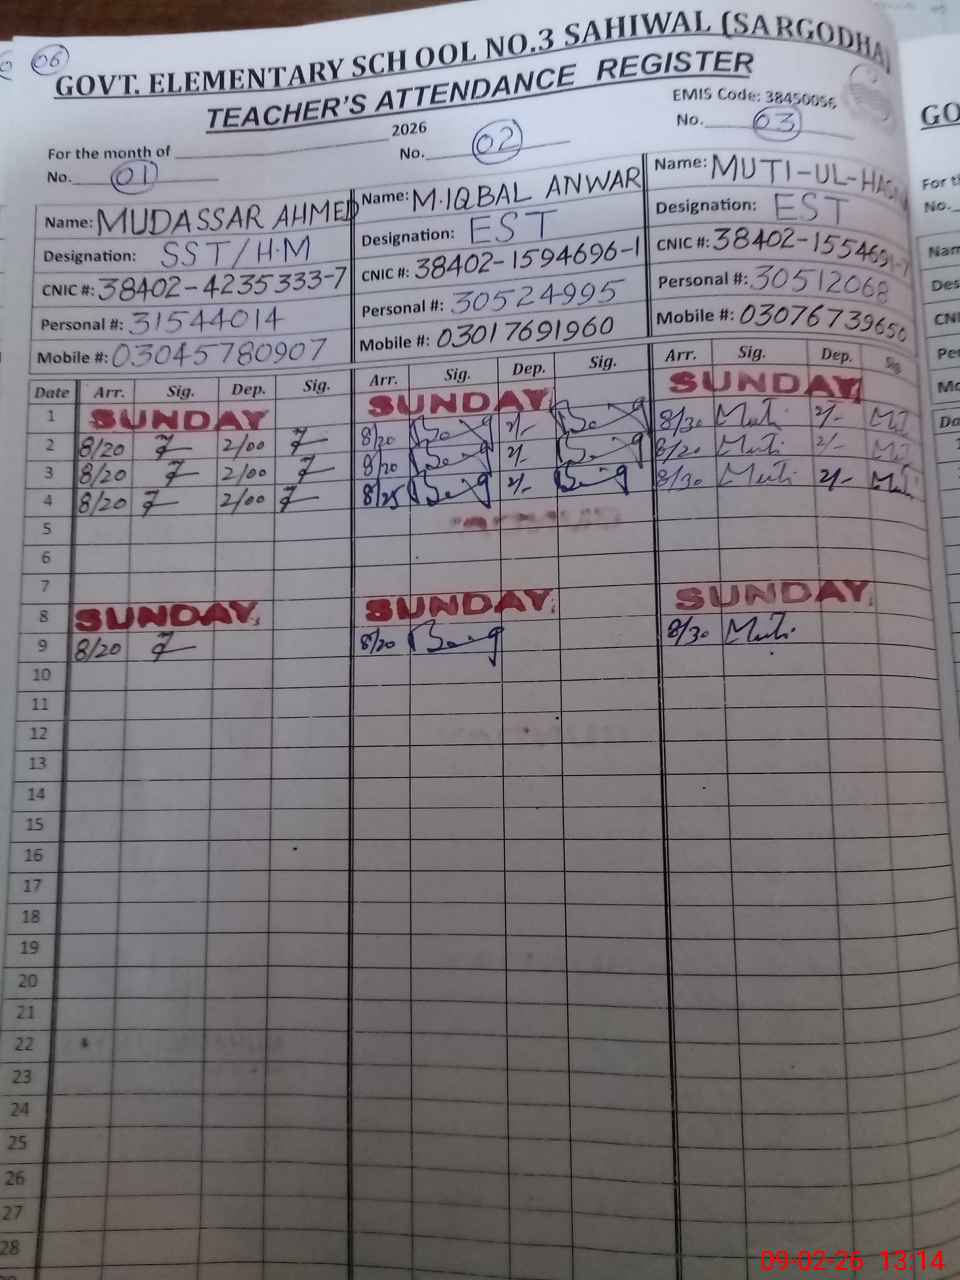 06
GOVT. ELEMENTARY SCHOOL NO.3 SAHIWAL (SARGODHA)
TEACHER'S ATTENDANCE REGISTER
EMIS Code: 38450056
For the month of 2026
No. 01 No. 02 No. 03
Name: MUDASSAR AHMED Name: M.IQBAL ANWAR Name: MUTI-UL-
Designation: SST/H.M Designation: EST Designation: EST
CNIC #: 38402-4235333-7 CNIC #: 38402-1594696-1 CNIC #: 38402-
Personal #: 31544014 Personal #: 30524995 Personal #: 30512068
Mobile #: 03045780907 Mobile #: 03017691960 Mobile #: 03076739650
Date Arr. Sig. Dep. Sig. Arr. Sig. Dep. Sig. Arr. Sig. Dep. Sig
1 SUNDAY SUNDAY SUNDAY
2 8/20 2/00 8/20 2/- 8/30 Muti 2/-
3 8/20 2/00 8/20 2/- 8/20 Muti 2/-
4 8/20 2/00 8/25 2/- 8/30 Muti 2/- Muti
5
6
7
8 SUNDAY SUNDAY SUNDAY
9 8/20 8/20 8/30 Muti
10
11
12
13
14
15
16
17
18
19
20
21
22
23
24
25
26
27
28
GO
For th
No.
Nam
Des
CNI
Per
Mo
Da
09-02-26 13:14